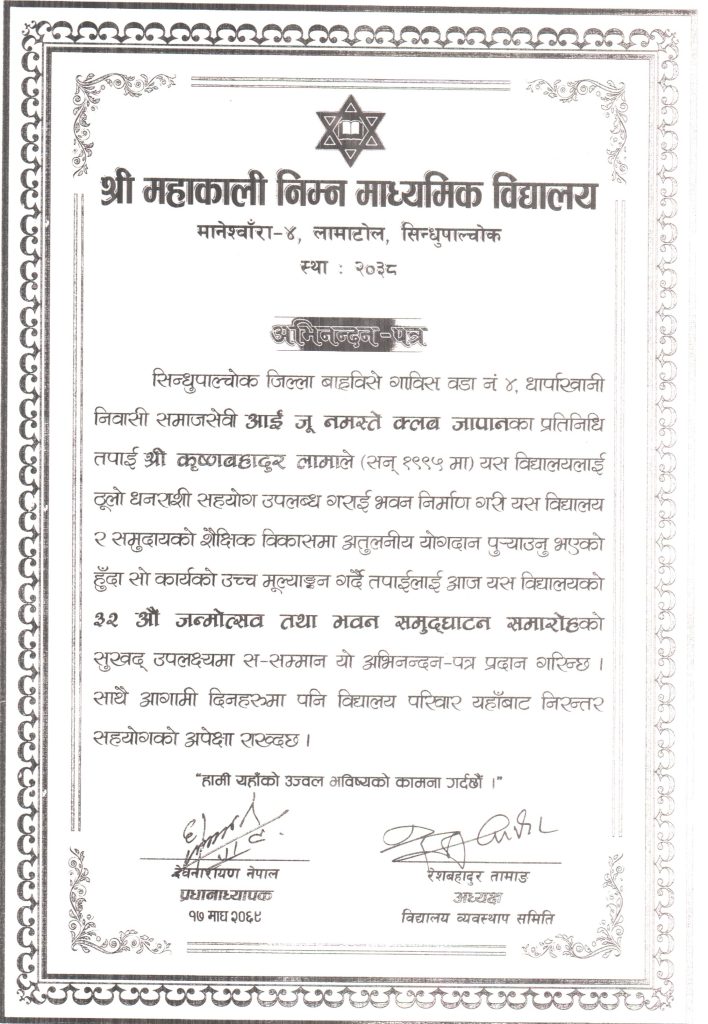 श्री महाकाली निम्न माध्यमिक विद्यालय
मानेश्वाँरा-४, लामाटोल, सिन्धुपाल्चोक
स्था : २०३८
अभिनन्दन-पत्र
सिन्धुपाल्चोक जिल्ला बाह्रविसे गाविस वडा नं ४, धार्पाखानी
निवासी समाजसेवी आई जू नमस्ते क्लब जापानका प्रतिनिधि
तपाई श्री कृष्णबहादुर लामाले (सन् १९९५ मा) यस विद्यालयलाई
ठूलो धनराशी सहयोग उपलब्ध गराई भवन निर्माण गरी यस विद्यालय
र समुदायको शैक्षिक विकासमा अतुलनीय योगदान पुऱ्याउनु भएको
हुँदा सो कार्यको उच्च मूल्याङ्कन गर्दै तपाईलाई आज यस विद्यालयको
३२ औ जन्मोत्सव तथा भवन समुद्घाटन समारोहको
सुखद् उपलक्ष्यमा स-सम्मान यो अभिनन्दन-पत्र प्रदान गरिन्छ ।
साथै आगामी दिनहरुमा पनि विद्यालय परिवार यहाँबाट निरन्तर
सहयोगको अपेक्षा राख्दछ ।
"हामी यहाँको उज्वल भविष्यको कामना गर्दछौं ।"
नेपाल
प्रधानाध्यापक
१७ माघ २०६९
तामाङ
अध्यक्ष
विद्यालय व्यवस्थाप समिति